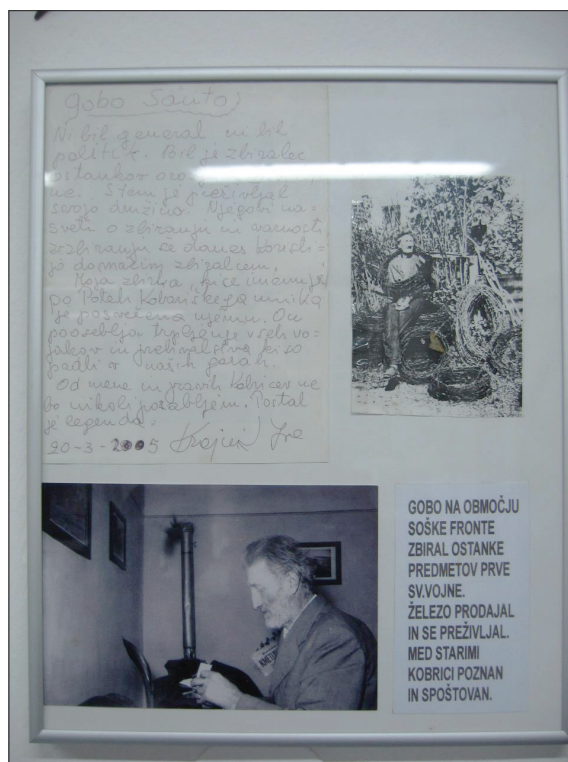 Gobo Santo
Ni bil general ni bil
politik. Bil je zbiralec
ostankov
S tem je preživljal
svojo družino. Njegovi na-
sveti o zbiranju in varnosti
zbiranju še danes koristi-
jo domačim zbiralcem.
Moja zbirka, ki se imenuje
po Poteh Kobariškega umika
je posvečena njemu. On
pooseblja trpljenje vseh vo-
jakov in prebivalstva ki so
padli v naših gorah.
Od mene in pravih Kobricev ne
bo nikoli pozabljen. Postal
je legenda.
20-3-2005
GOBO NA OBMOČJU
SOŠKE FRONTE
ZBIRAL OSTANKE
PREDMETOV PRVE
SV.VOJNE.
ŽELEZO PRODAJAL
IN SE PREŽIVLJAL.
MED STARIMI
KOBRICI POZNAN
IN SPOŠTOVAN.